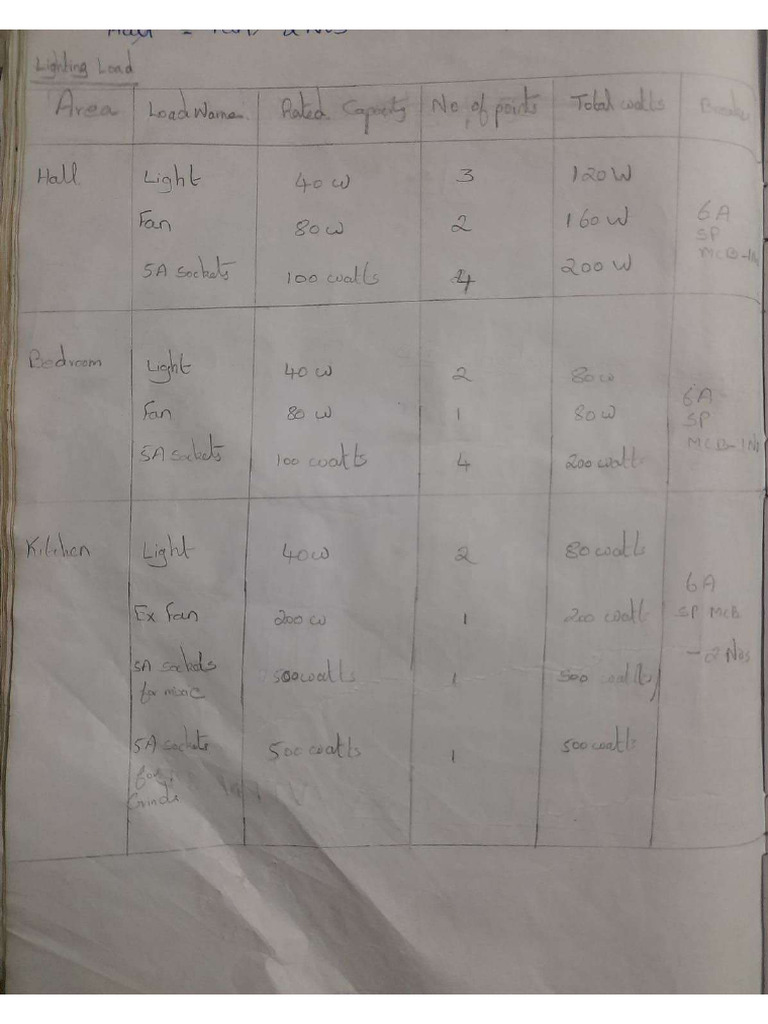 Lighting Load
Area Load Name. Rated Capacity No. of points Total watts
Hall Light 40 W 3 120 W
Fan 80 W 2 160 W 6A
SP
5A sockets 100 watts 4 200 W MCB-1N
Bedroom Light 40 W 2 80 W
Fan 80 W 1 80 W 6A
SP
5A sockets 100 watts 4 200 watts MCB-1No
Kitchen Light 40 W 2 80 watts
6A
Ex Fan 200 W 1 200 watts SP MCB
5A sockets 500 watts 1 500 watts - 2 Nos
for
5A sockets 500 watts 1 500 watts
for